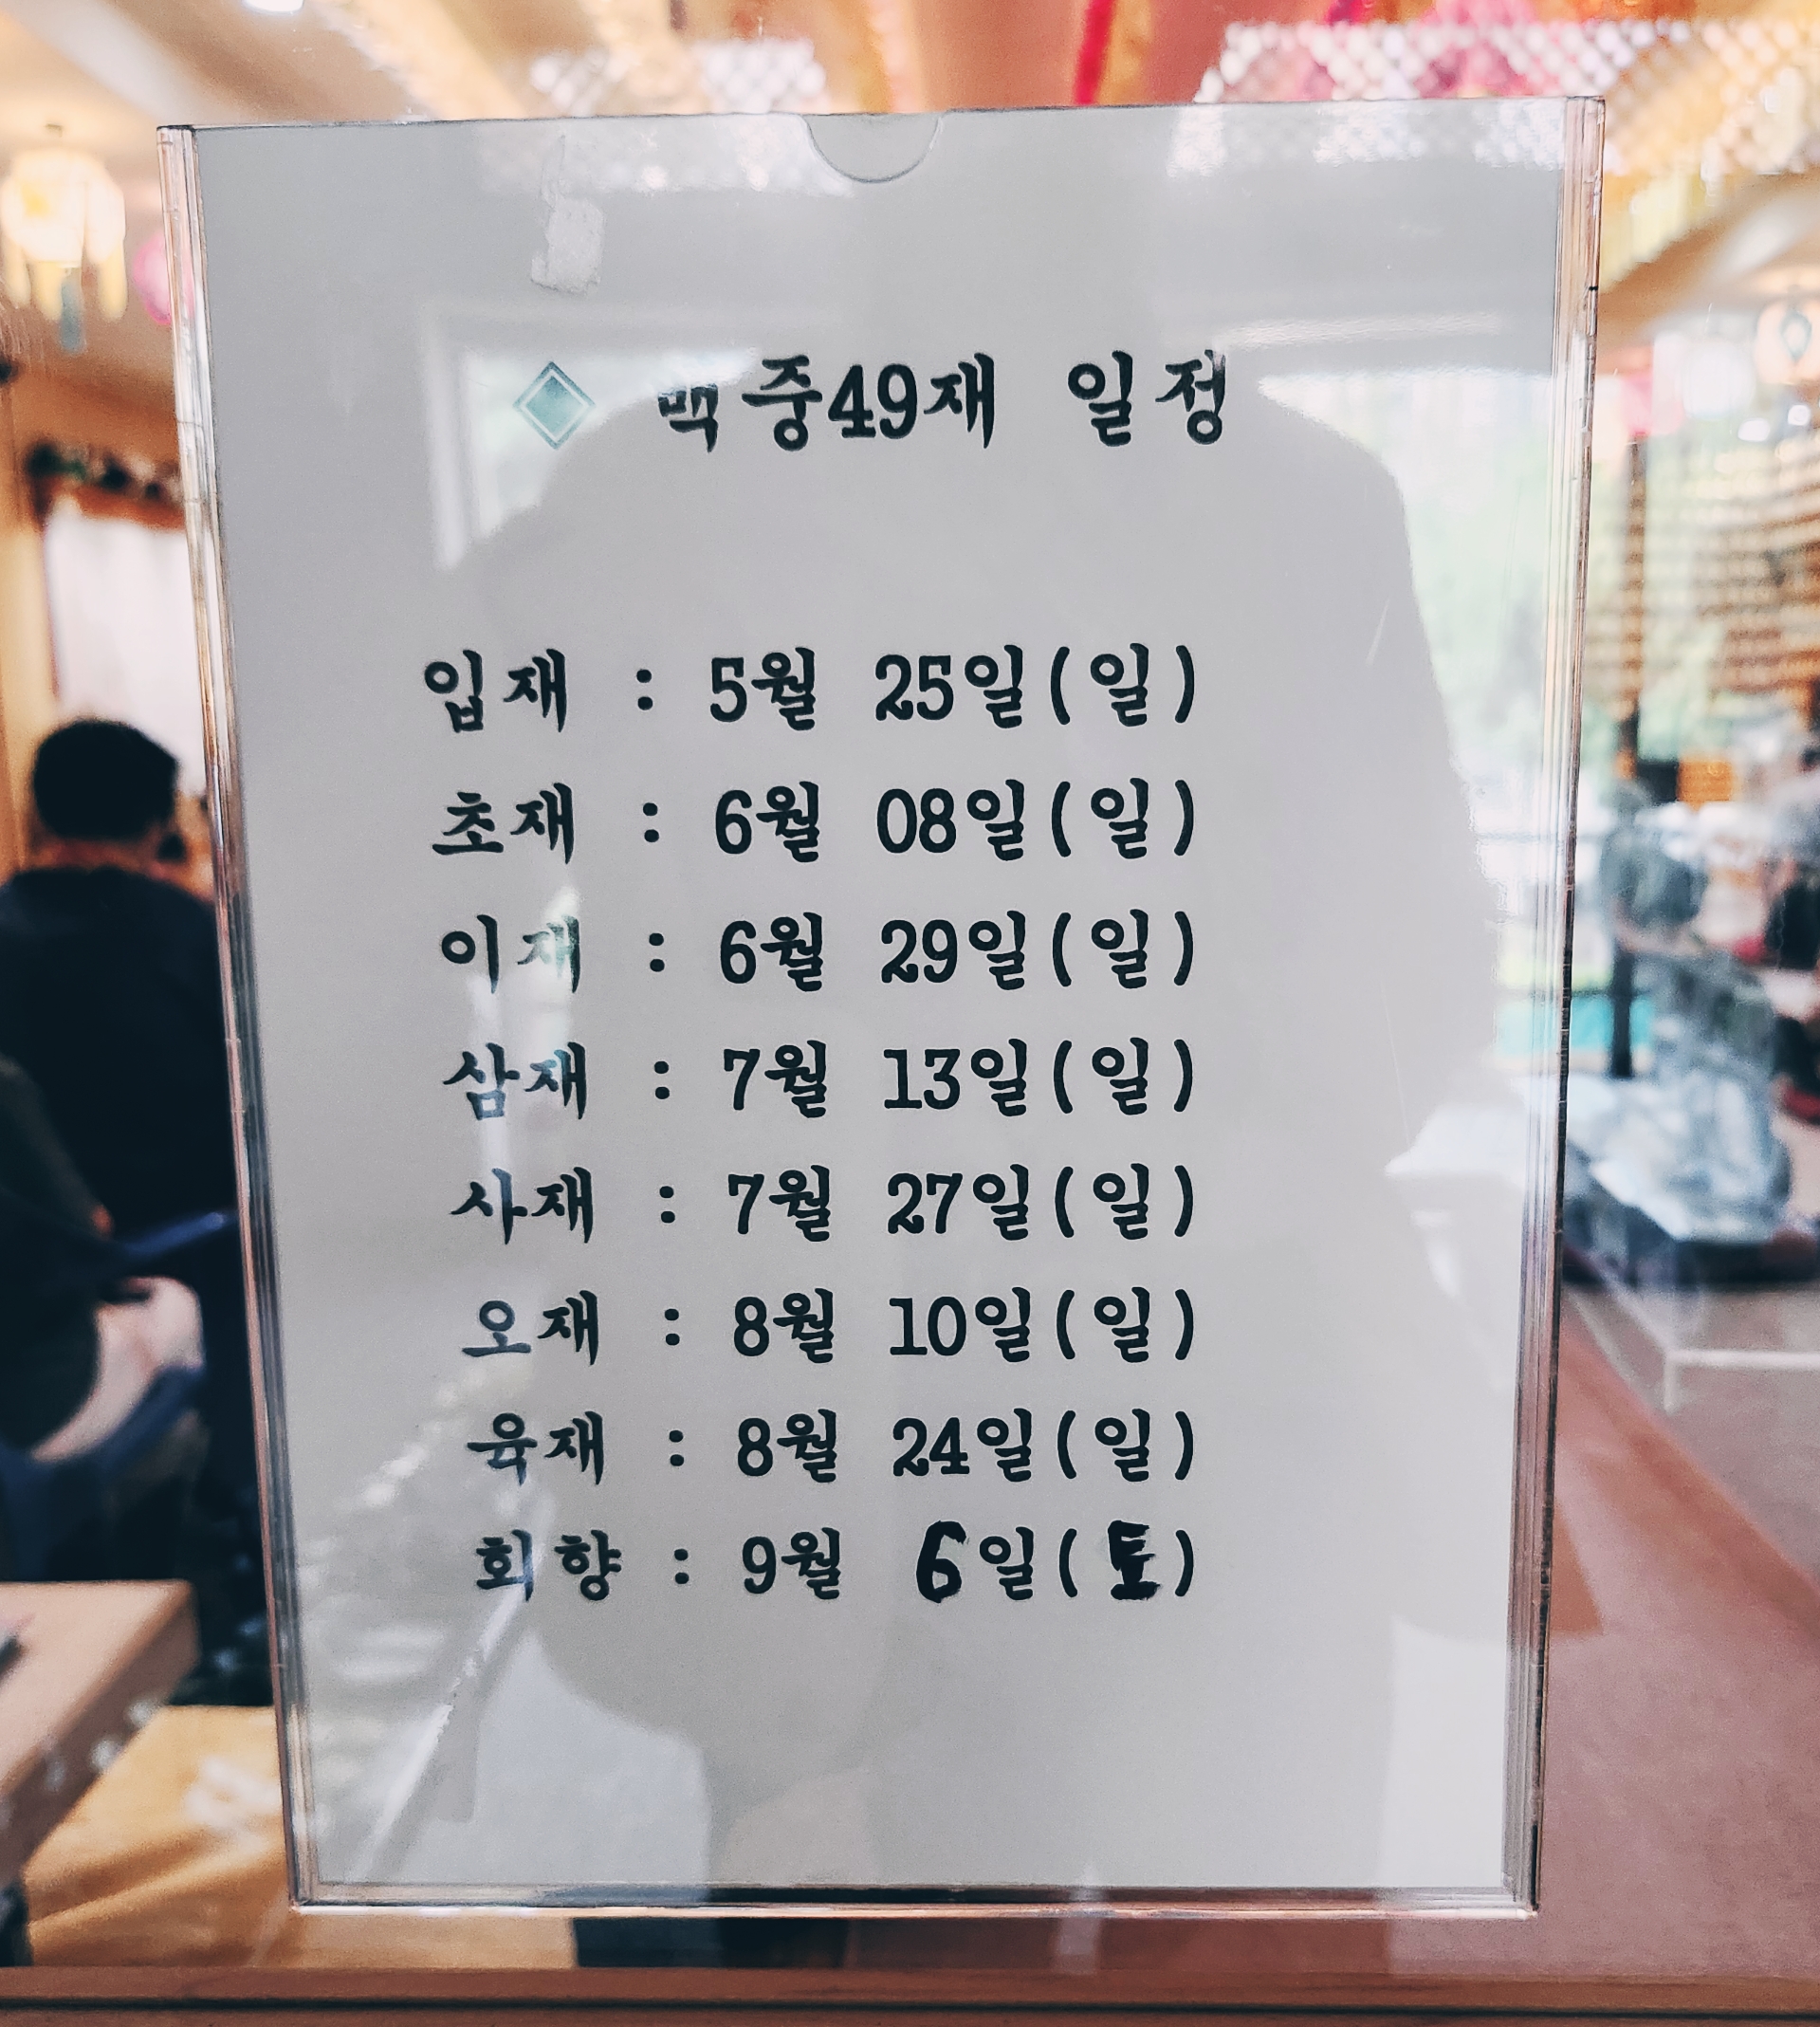 ◈ 백중49재 일정
입재 : 5월 25일(일)
초재 : 6월 08일(일)
이재 : 6월 29일(일)
삼재 : 7월 13일(일)
사재 : 7월 27일(일)
오재 : 8월 10일(일)
육재 : 8월 24일(일)
회향 : 9월 6일(토)